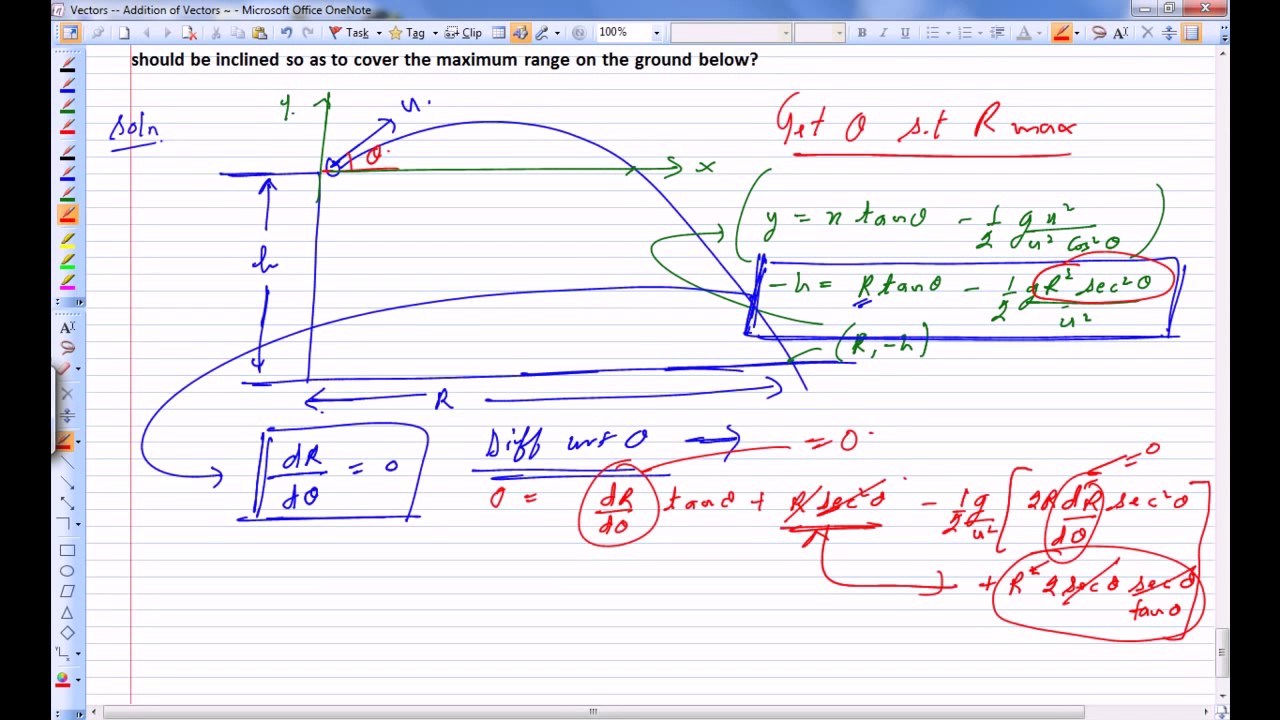 Vectors -- Addition of Vectors ~ - Microsoft Office OneNote
Task Tag Clip 100% B I U A
should be inclined so as to cover the maximum range on the ground below?
Soln
y
u.
θ
x
h
Get θ s.t R max
y = x tanθ - 1/2 g x²/u² cos²θ
-h = R tanθ - 1/2 g R² sec²θ/u²
(R, -h)
R
dR/dθ = 0
Diff wrt θ → = 0
0 = dR/dθ tanθ + R sec²θ - 1/2 g/u² [ 2R dR/dθ sec²θ
= 0
+ R² 2 secθ secθ tanθ ]